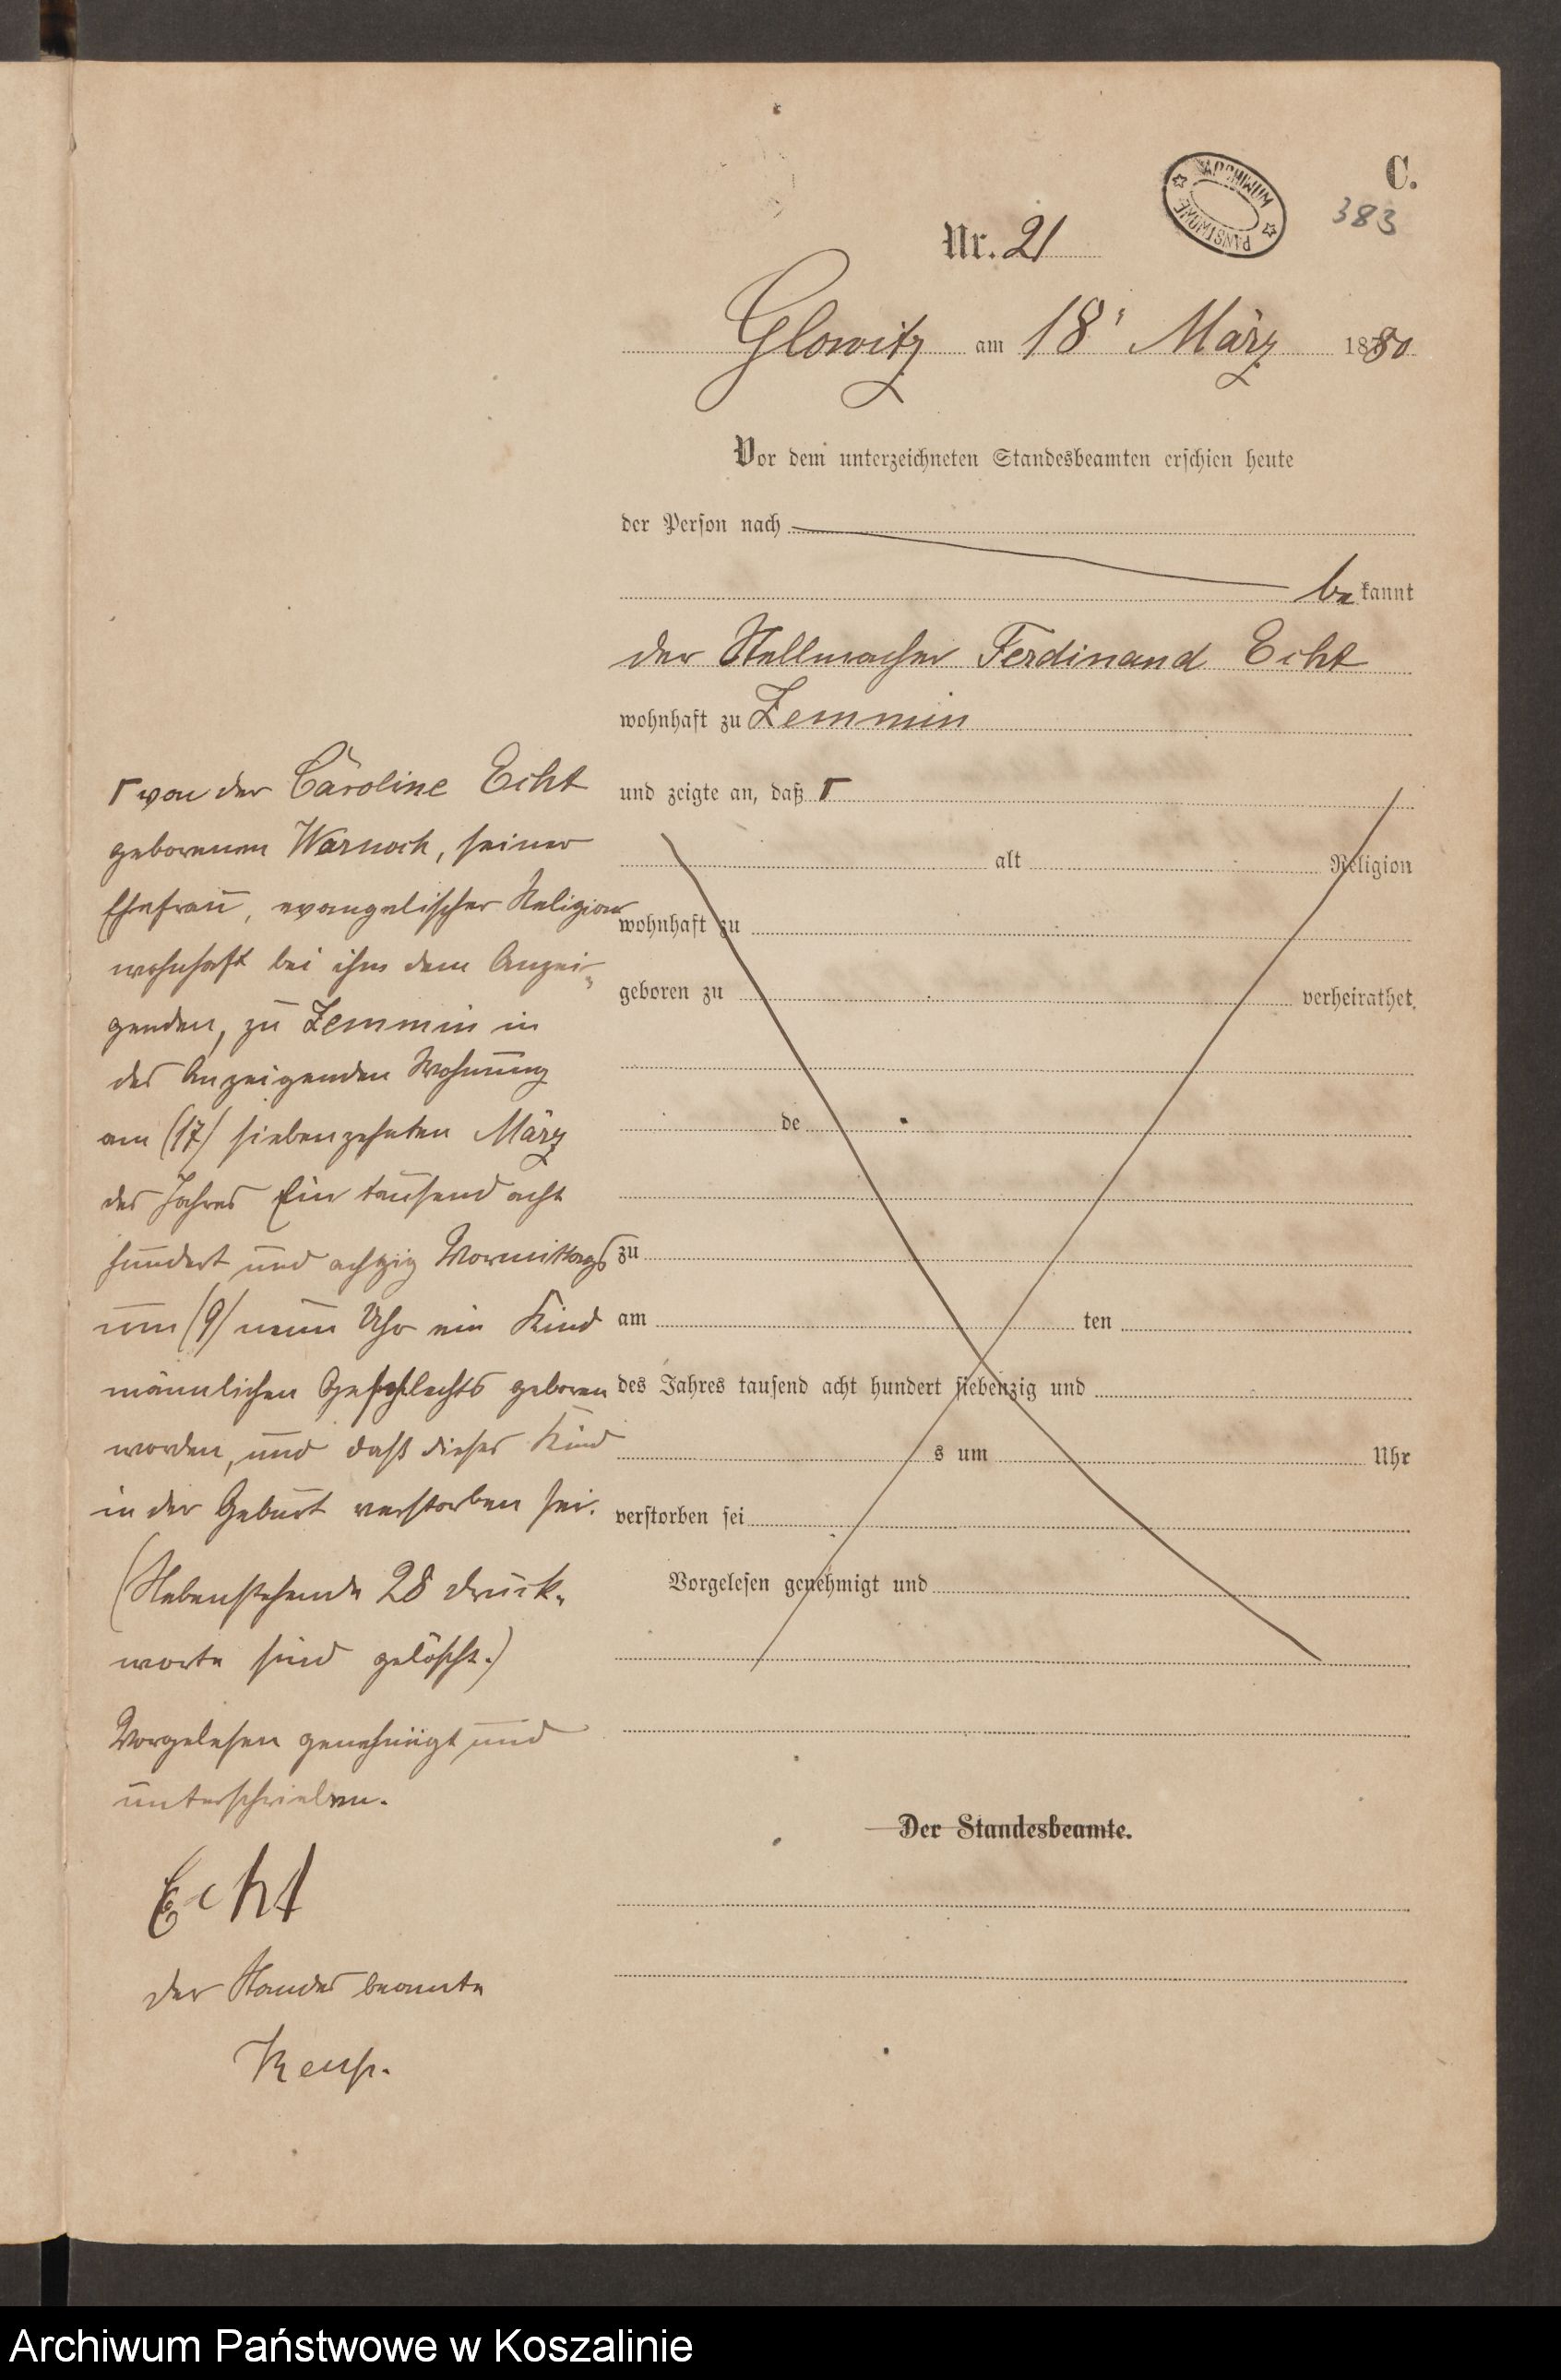 C.
ARCHIWUM PAŃSTWOWE
383
Nr. 21
Glowitz am 18' März 1880
Vor dem unterzeichneten Standesbeamten erschien heute
der Person nach
bekannt
der Stellmacher Ferdinand Echt
wohnhaft zu Zemmin
und zeigte an, daß Γ
alt Religion
wohnhaft zu
geboren zu verheirathet
de
zu
am ten
des Jahres tausend acht hundert siebenzig und
s um Uhr
verstorben sei
Vorgelesen genehmigt und
Der Standesbeamte.
Γ von der Caroline Echt
geborenen Warnoch, seiner
Ehefrau, evangelischer Religion
wohnhaft bei ihm dem Anzei-
genden, zu Zemmin in
des Anzeigenden Wohnung
am (17) siebenzehnten März
des Jahres Ein tausend acht
hundert und achzig Vormittags
um (9) neun Uhr ein Kind
männlichen Geschlechts geboren
worden, und daß dieses Kind
in der Geburt verstorben sei.
(Nebenstehende 28 Druck-
worte sind gelöscht.)
Vorgelesen genehmigt und
unterschrieben.
Echt
Der Standesbeamte
Archiwum Państwowe w Koszalinie